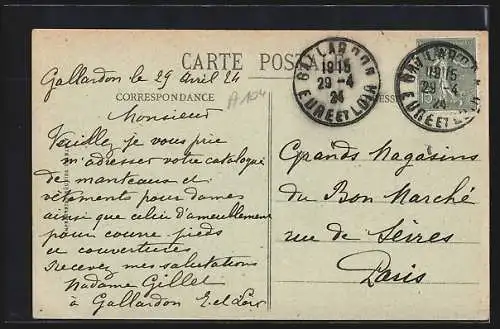 CARTE POSTALE
GALLARDON
19 15
29 - 4
24
EURE ET LOIR
GALLARDON
19 15
29 - 4
24
EURE ET LOIR
Gallardon le 29 Avril 24
A 104
CORRESPONDANCE
Monsieur
Veuillez, je vous prie
m'adresser votre catalogue
de manteaux et
vêtements pour dames
ainsi que celui d'ameublement
pour couvre-pieds
et couvertures
Recevez mes salutations
Madame Gillet
à Gallardon E. et Loir
Grands Magasins
du Bon Marché
rue de Sèvres
Paris